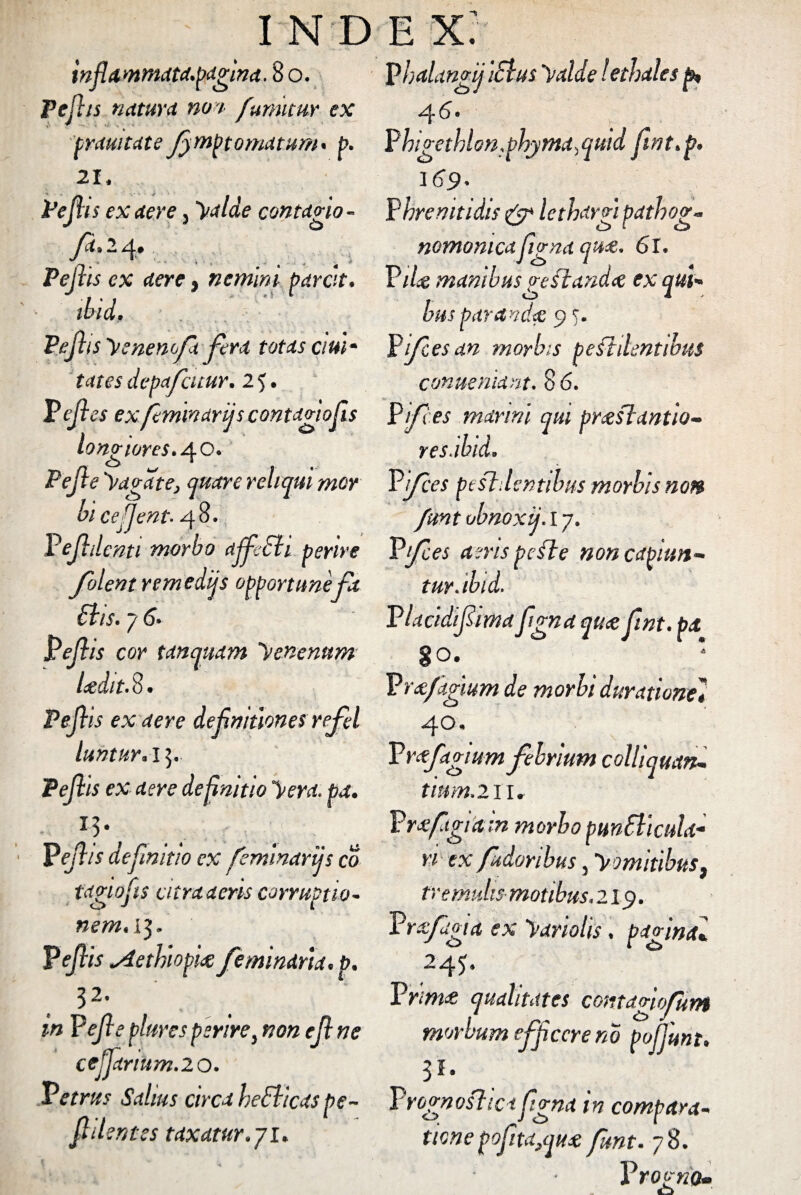 INDEX.
inflammata.pagina.80.
Pestis natura non sumitur ex
prauitate symptomatum. p.
21.
Pestis ex aere, valde contagio-
sa.24.
Pestis ex aere, nemini parcit.
ibid.
Pestis venenosa fera totas ciui-
tates depascitur. 25.
Pestes ex seminarijs contagiosis
longiores.40.
Peste vagãte, quare reliqui mor
bi cessent. 48.
Pestilenti morbo affecti perire
solent remedijs opportunè fa
ctis. 76.
Pestis cor tanquam venenum
lædit.8.
Pestis ex aere definitiones refel
luntur.13.
Pestis ex aere definitio vera. pa.
13.
Pestis definitio ex seminarijs cõ
tagiosis citra aeris corruptio-
nem.13.
Pestis Aethiopiæ seminaria. p.
32.
in Peste plures perire, non est ne
cessarium.20.
Petrus Salius circa hecticas pe-
stilentes taxatur.71.
Phalangij ictus valde lethales p.
46.
Phigethlon,phyma,quid sint.p.
169.
Phrenitidis & lethargi pathog-
nomonica signa quæ. 61.
Pilæ manibus gestandæ ex qui-
bus parandæ 95.
Pisces an morbis pestilentibus
conueniant. 86.
Pisces marini qui præstantio-
res.ibid.
Pisces pestilentibus morbis non
sunt obnoxij.17.
Pisces aeris peste non capiun-
tur.ibid.
Placidissima signa quæ sint. pa
80.
Præsagium de morbi duratione.
40.
Præsagium febrium colliquan-
tium.211.
Præsagia in morbo puncticula-
ri ex sudoribus, vomitibus,
tremulis motibus.219.
Præsagia ex variolis. pagina.
245.
Primæ qualitates contagiosum
morbum efficere nõ possunt.
31.
Prognostica signa in compara-
tione posita,quæ sunt. 78.
Progno-